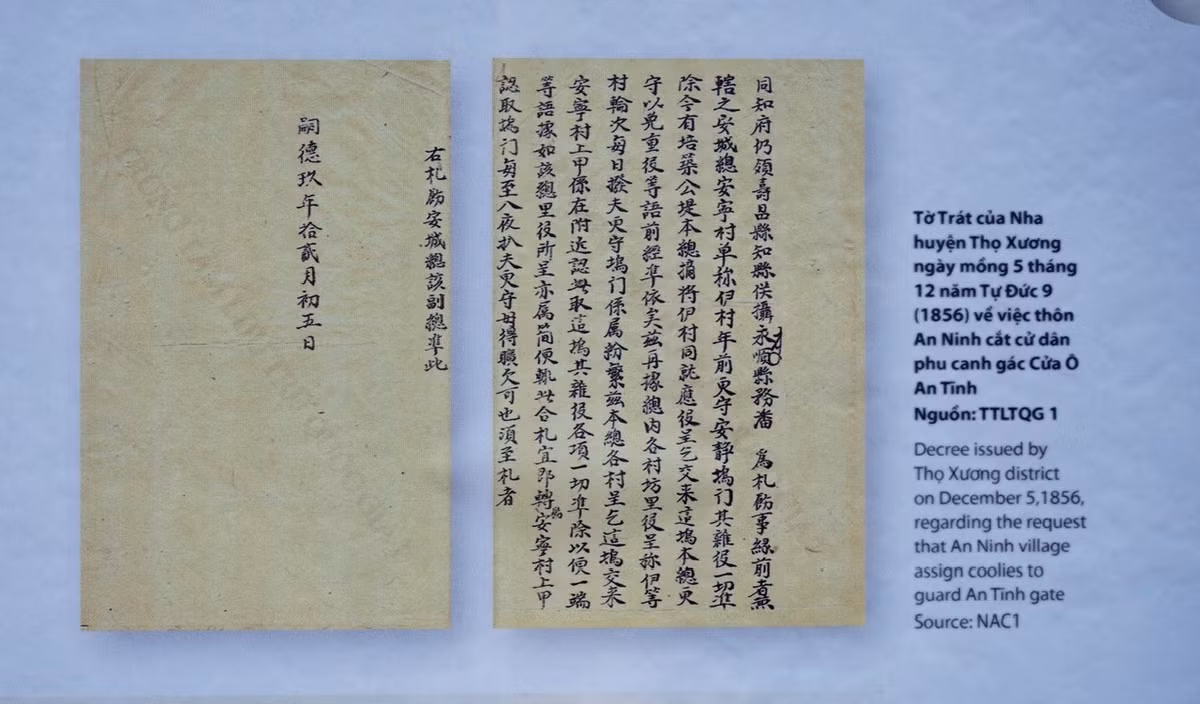 同知府仍領壽昌縣知縣供攝永順縣務潘 為札飭事緣前
轄之安城總安寧村单称伊村年前更守安靜塢门其雜役一切準
除今有培築公堤本總摘將伊村同就應役呈乞交来這塢本總更
守以免重役等語前經準依矣茲再據總内各村坊里役呈称伊等
村輪次每日撥夫更守塢门係属紛繁茲本總各村呈乞這塢交来
安寧村上甲係在附近認取這塢其雜役各項一切準除以便一端
等語據如該總里役所呈亦属简便輒此合札宜即轉飭安寧村上甲
認取塢门每至八夜扒夫更守毋得曠欠可也須至札者
右札飭安城總該副總準此
嗣德玖年拾貳月初五日
Tờ Trát của Nha
huyện Thọ Xương
ngày mồng 5 tháng
12 năm Tự Đức 9
(1856) về việc thôn
An Ninh cắt cử dân
phu canh gác Cửa Ô
An Tĩnh
Nguồn: TTLTQG 1
Decree issued by
Thọ Xương district
on December 5,1856,
regarding the request
that An Ninh village
assign coolies to
guard An Tĩnh gate
Source: NAC1